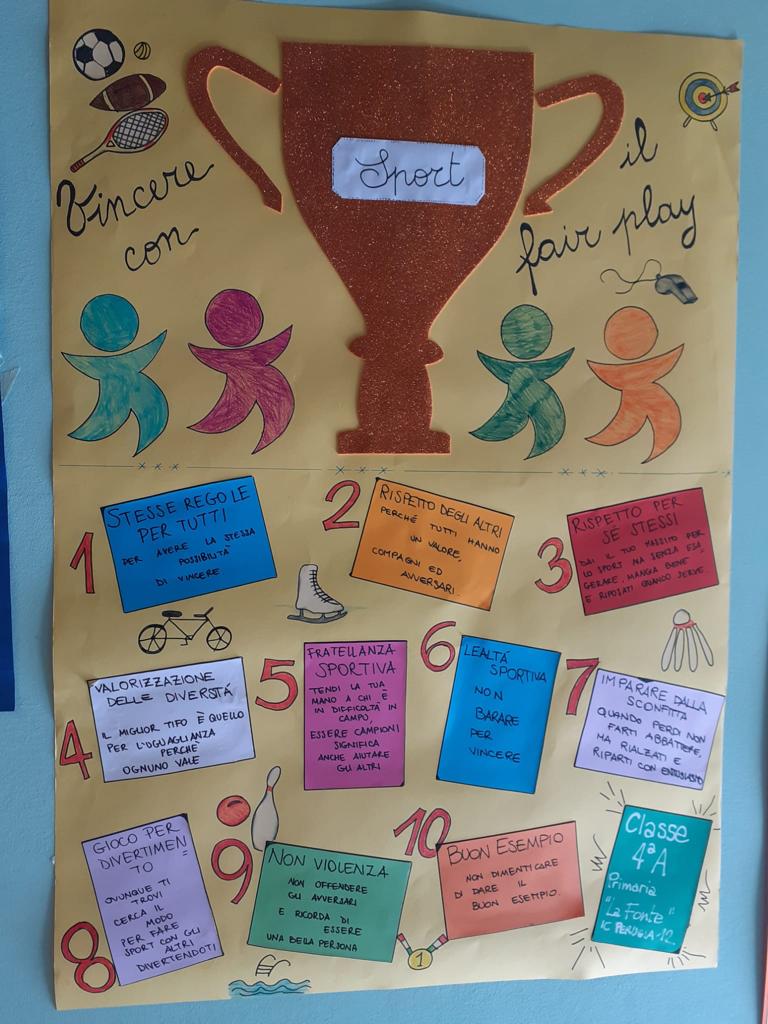 Vincere
con
Sport
il
fair play
1
STESSE REGOLE
PER TUTTI
PER AVERE LA STESSA
POSSIBILITÀ
DI VINCERE
2
RISPETTO DEGLI ALTRI
PERCHÉ TUTTI HANNO
UN VALORE,
COMPAGNI ED
AVVERSARI.
3
RISPETTO PER
SÉ STESSI
DAI IL TUO MASSIMO PER
LO SPORT MA SENZA ESA=
GERARE, MANGIA BENE
E RIPOSATI QUANDO SERVE.
4
VALORIZZAZIONE
DELLE DIVERSTÁ
IL MIGLIOR TIFO È QUELLO
PER L'UGUAGLIANZA
PERCHÈ
OGNUNO VALE
5
FRATELLANZA
SPORTIVA
TENDI LA TUA
MANO A CHI È
IN DIFFICOLTÀ IN
CAMPO,
ESSERE CAMPIONI
SIGNIFICA
ANCHE AIUTARE
GLI ALTRI
6
LEALTÁ
SPORTIVA
NON
BARARE
PER
VINCERE
7
IMPARARE DALLA
SCONFITTA
QUANDO PERDI NON
FARTI ABBATTERE,
MA RIALZATI E
RIPARTI CON ENTUSIASMO
8
GIOCO PER
DIVERTIMEN=
TO
OVUNQUE TI
TROVI
CERCA IL
MODO
PER FARE
SPORT CON GLI
ALTRI
DIVERTENDOTI
9
NON VIOLENZA
NON OFFENDERE
GLI AVVERSARI
E RICORDA DI
ESSERE
UNA BELLA PERSONA
10
BUON ESEMPIO
NON DIMENTICARE
DI DARE IL
BUON ESEMPIO.
1
Classe
4ª A
Primaria
"La Fonte"
IC PERUGIA-12